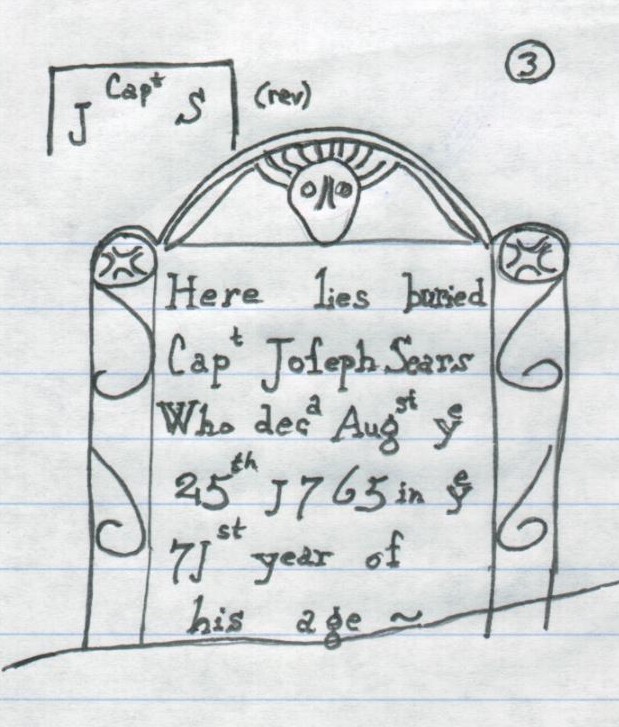 ③
J Capᵗ S (rev)
Here lies buried
Capᵗ Joſeph Sears
Who decᵈ Augˢᵗ yᵉ
25ᵗʰ J765 in yᵉ
7Jˢᵗ year of
his age ~